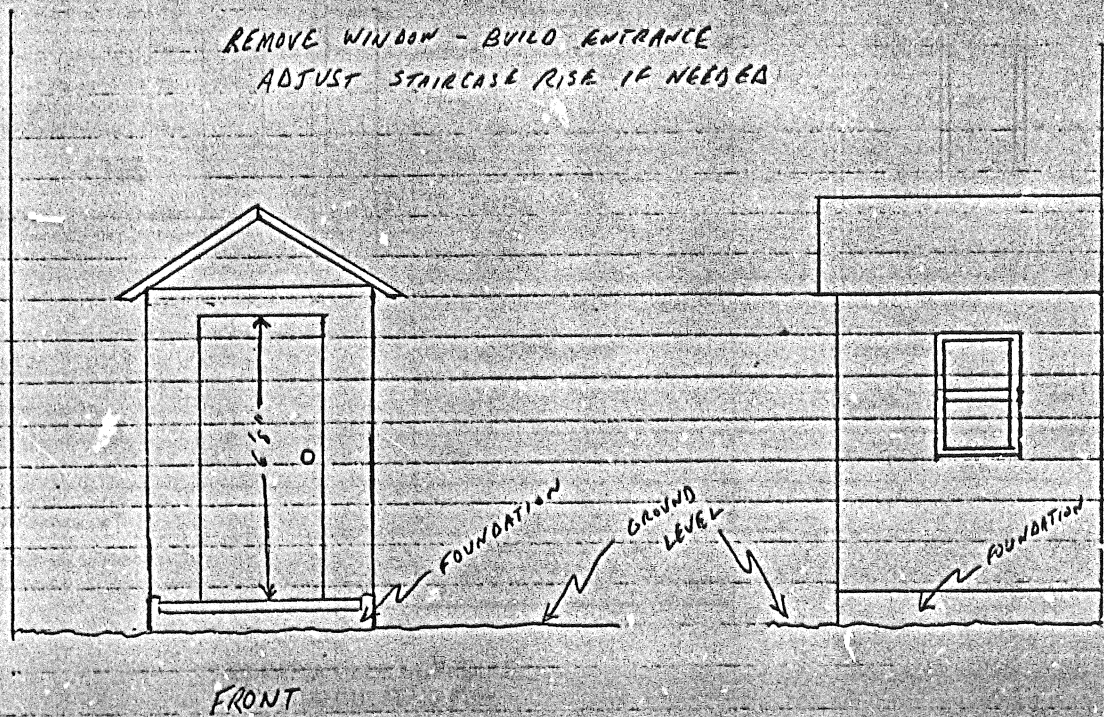 REMOVE WINDOW - BUILD ENTRANCE
ADJUST STAIRCASE RISE IF NEEDED
FOUNDATION
GROUND
LEVEL
FOUNDATION
FRONT